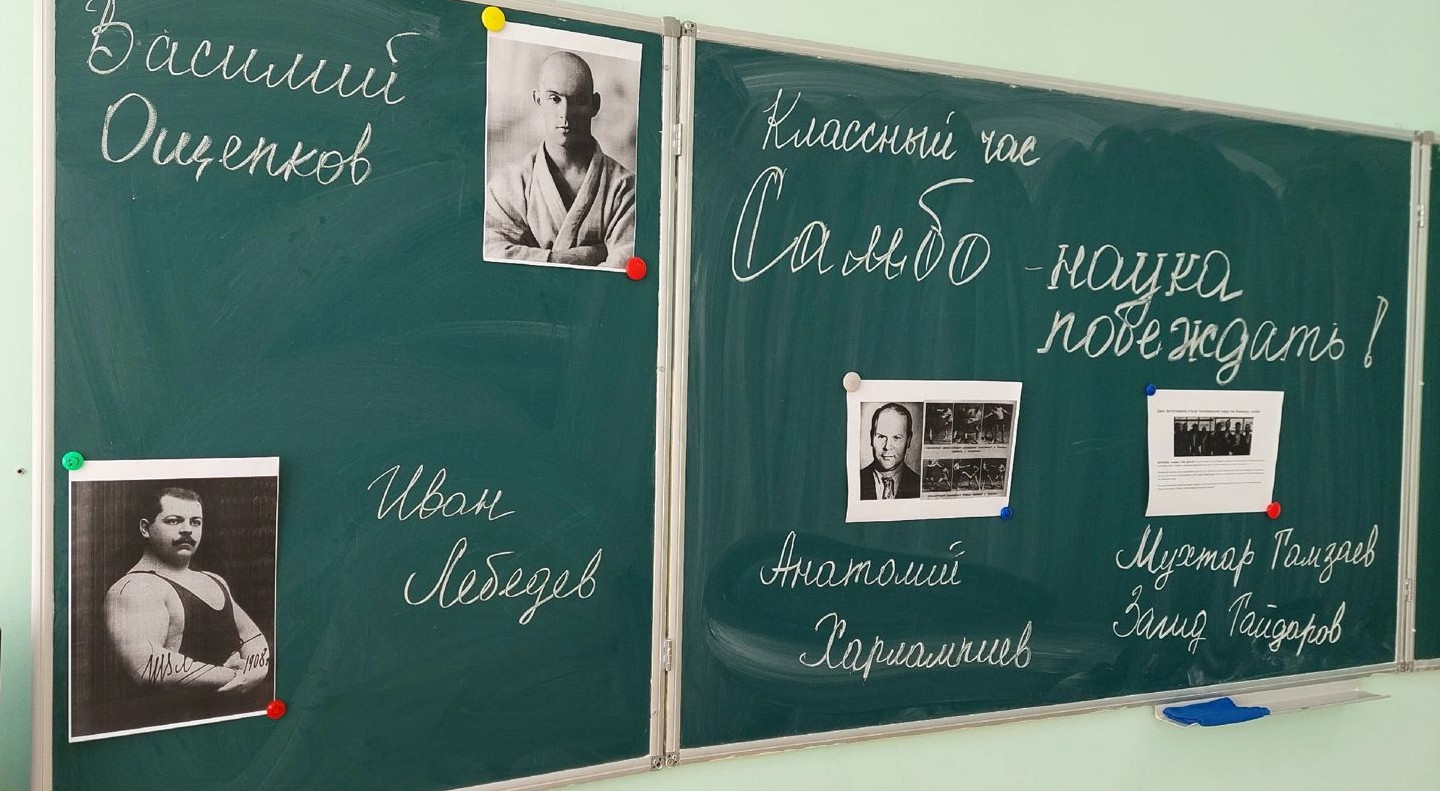 Василий
Ощепков
Иван
Лебедев
1908г
Классный час
Самбо - наука
побеждать!
Анатолий
Харлампиев
Мухтар Гамзаев
Загид Гайдаров